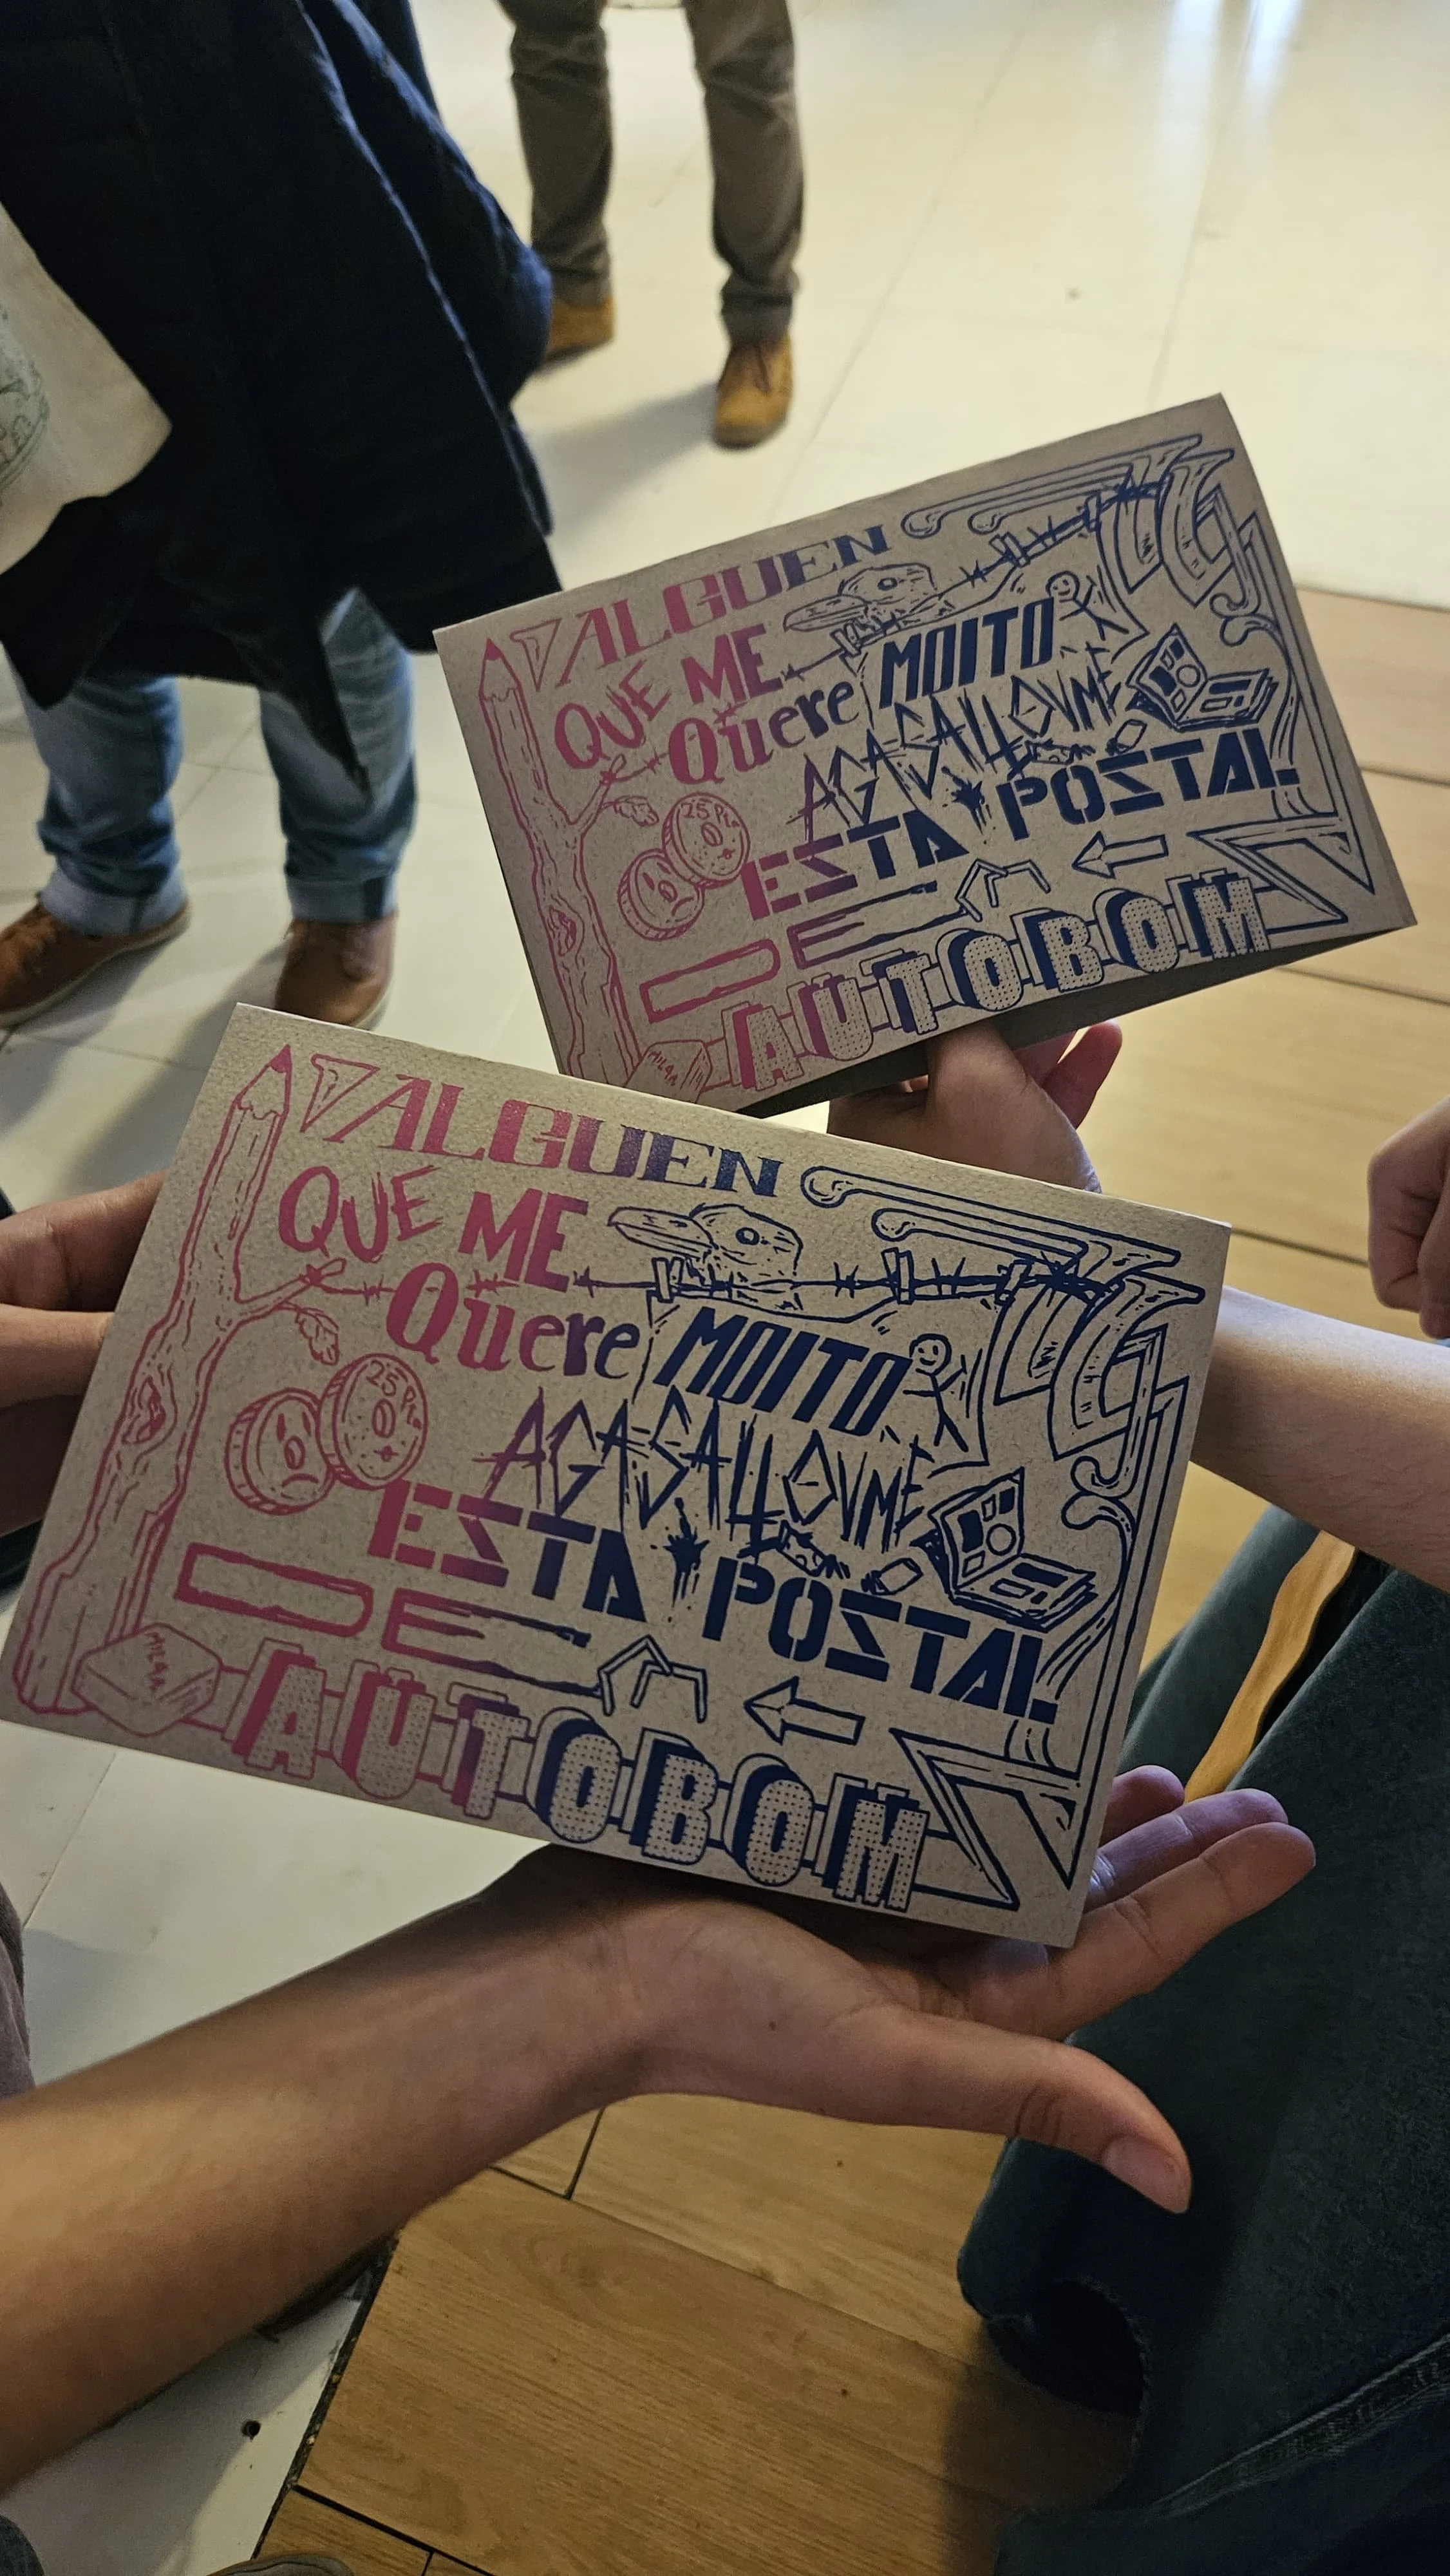 ALGUEN
QUE ME
Quere MOITO
AGASALLOUME
ESTA POSTAL
DE
AUTOBOM
25 PTS
MILAN
ALGUEN
QUE ME
Quere MOITO
AGASALLOUME
ESTA POSTAL
DE
AUTOBOM
25 PTS
MILAN